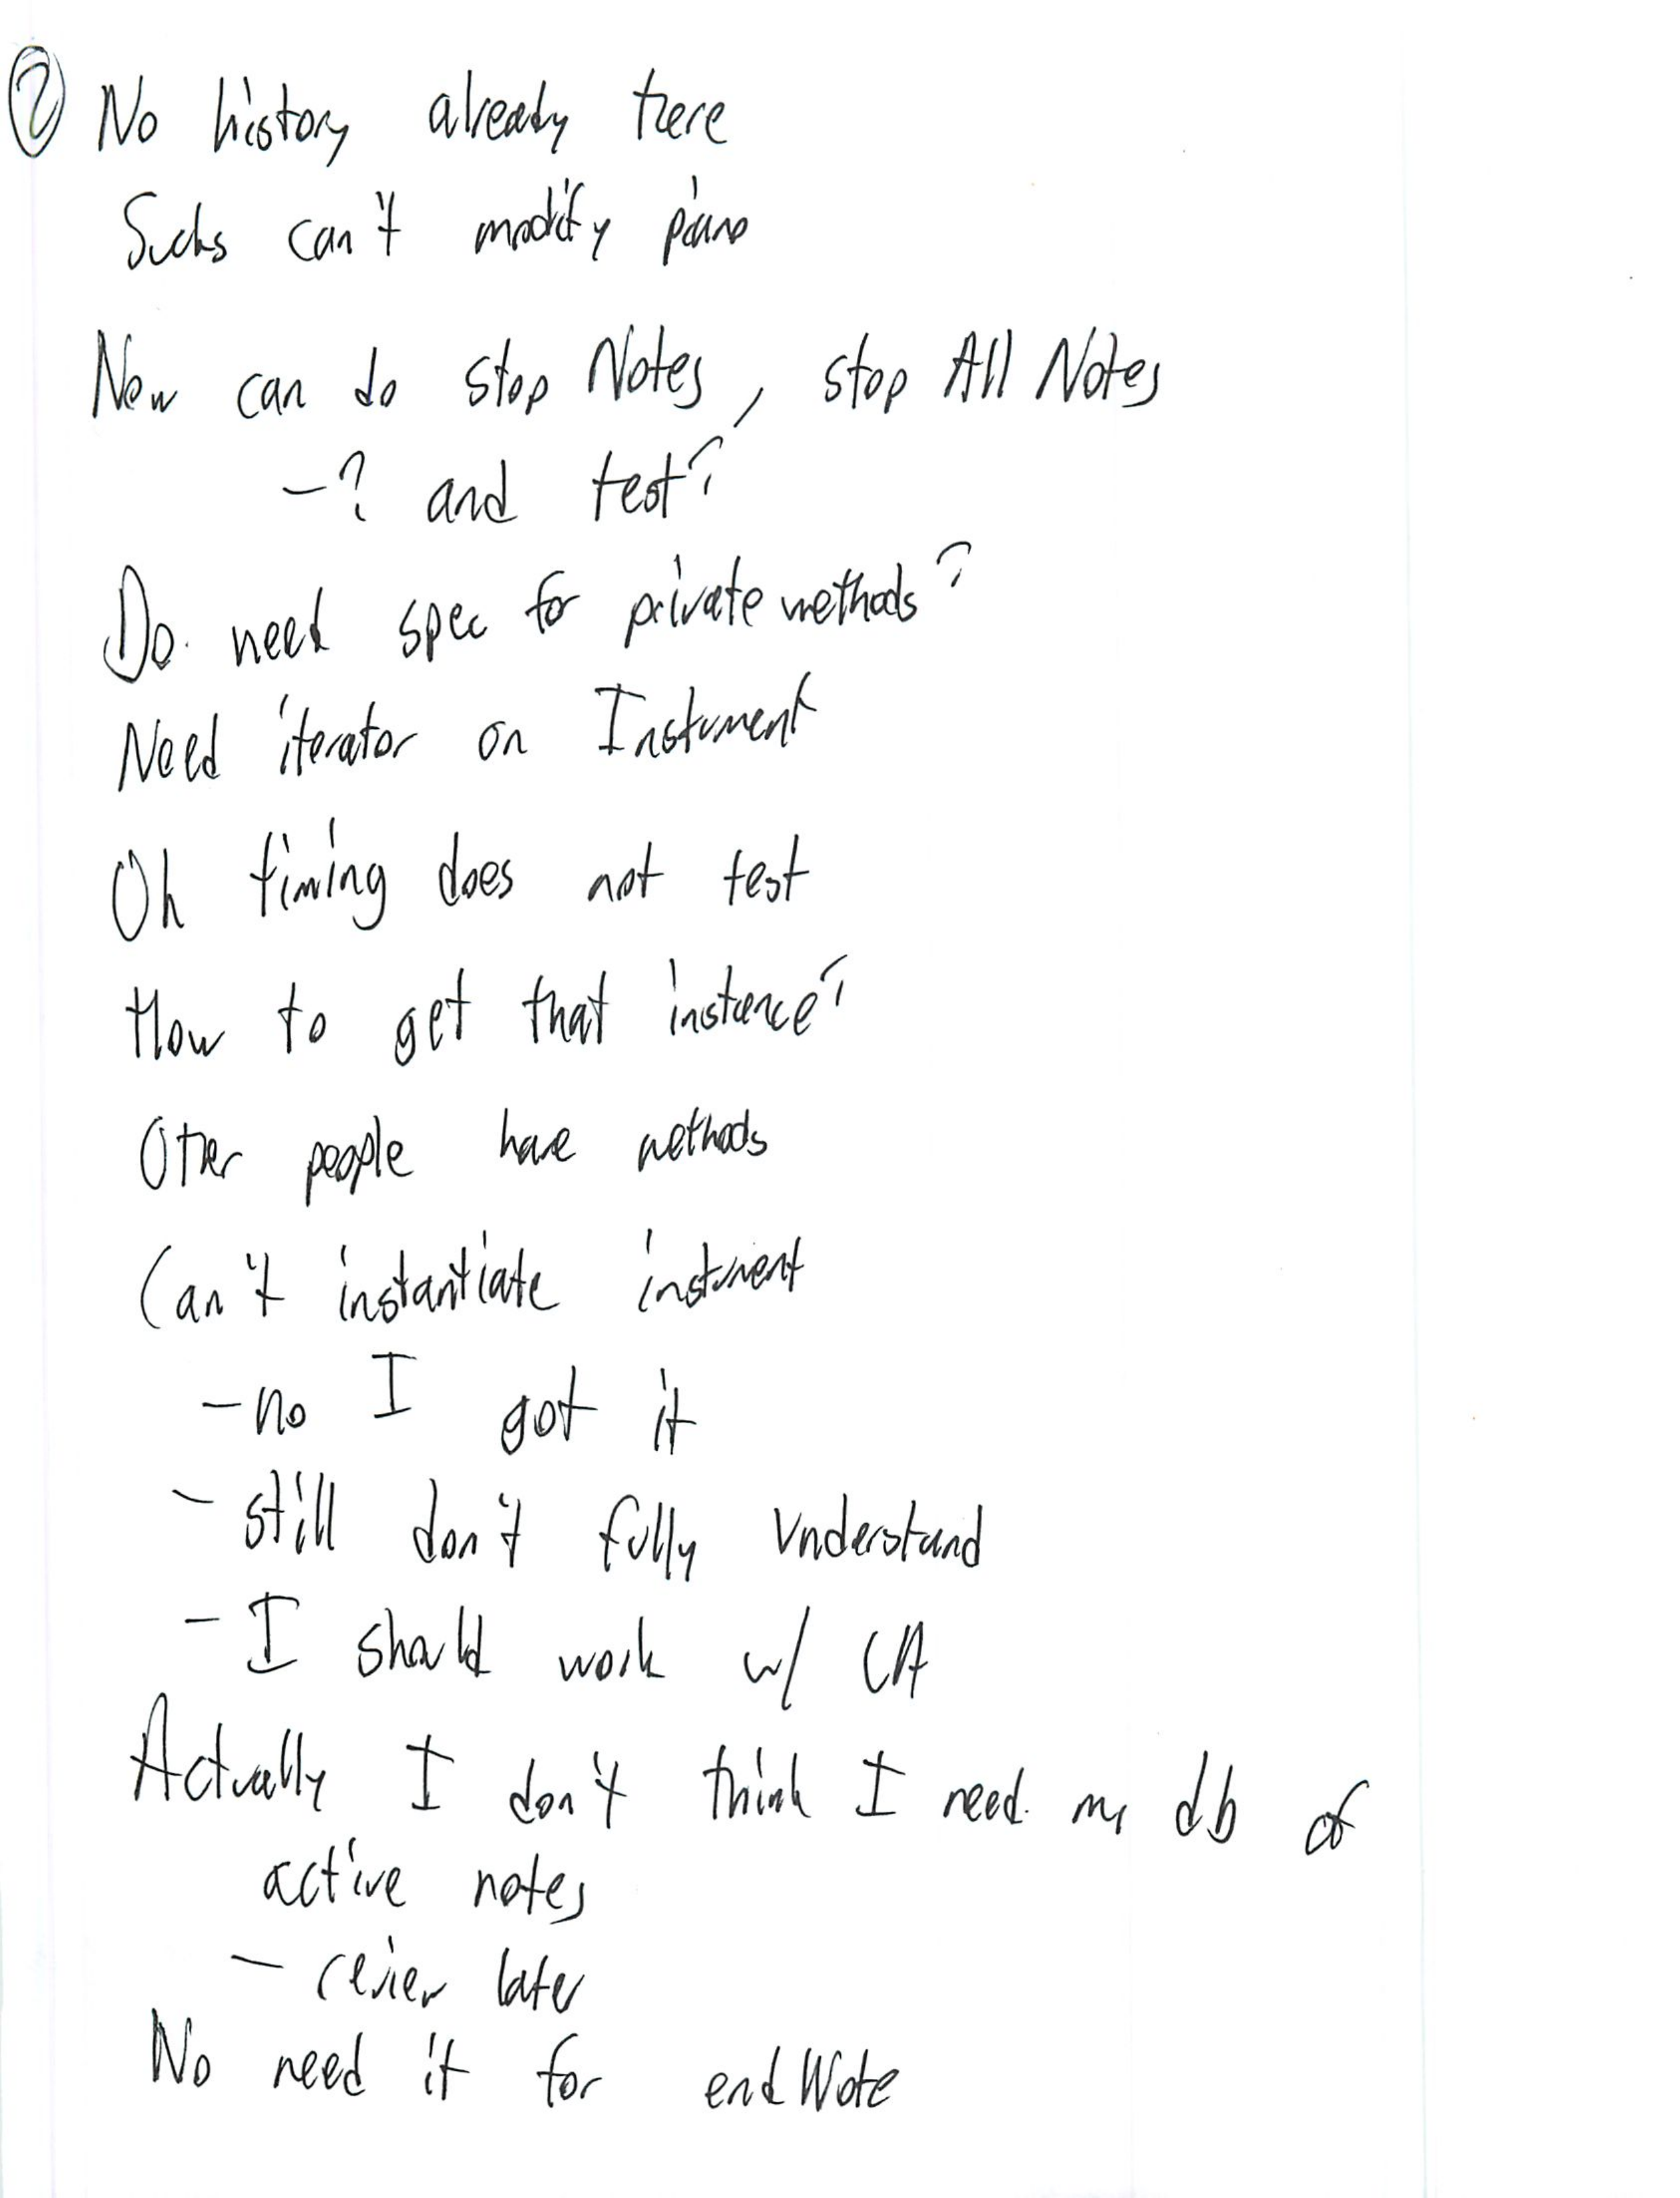 ② No history already there
Sucks can't modify piano
Now can do stop Notes, stop All Notes
-? and test?
Do need spec for private methods?
Need iterator on Instument
Oh timing does not test
How to get that instance?
Other people have methods
Can't instantiate instument
- no I got it
- still don't fully understand
- I should work w/ CA
Actually I don't think I need my db of
active notes
- review later
No need it for end Note